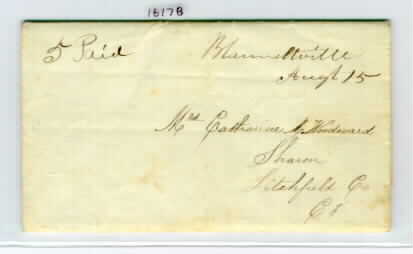 18178
5 Paid Blumville
Augt 15
Mrs Catharine M Woodward
Sharon
Litchfield Co
Ct